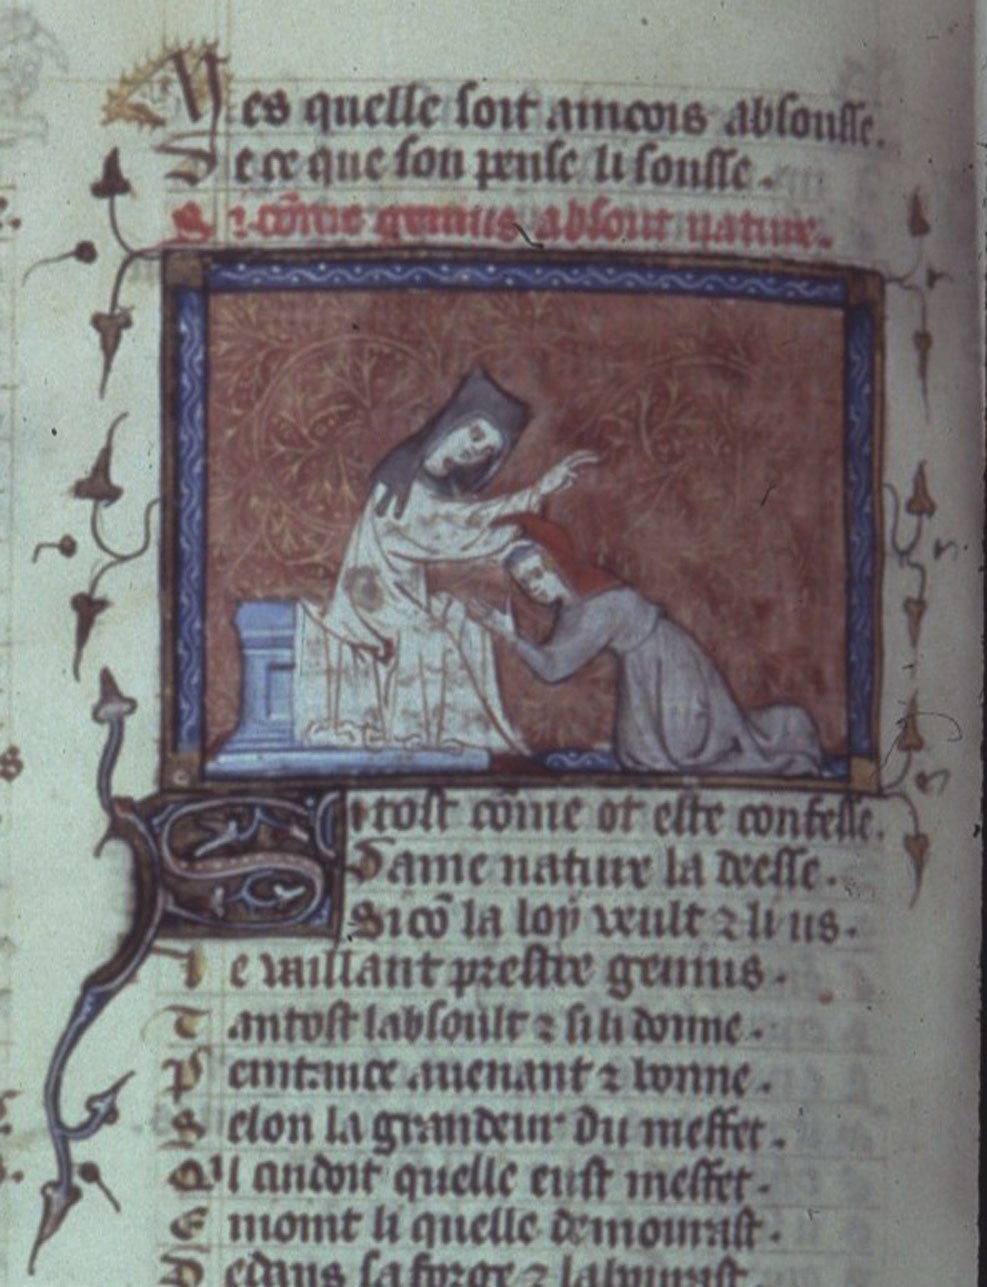 Mes quelle soit aincois absousse.
De ce que son pense li sousse.
Si cōme genius absout nature.
Si tost cōme ot este confesse.
Dame nature la deesse.
Si cō la loy veult ⁊ li us.
Le vaillant prestre genius.
Tantost labsoult ⁊ si li donne.
Penitance auenant ⁊ bonne.
Selon la grandeur du meffet.
Quil cuidoit quelle eust meffet.
Enioint li quelle demourast.
Dedans sa forge ⁊ labourast